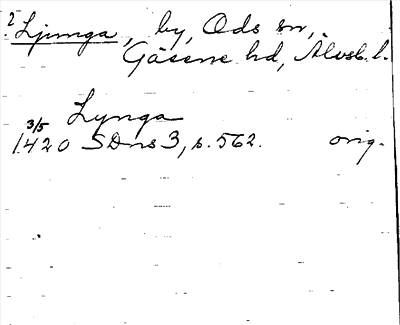 2 Ljunga, by, Ods sn,
Gäsene hd, Älvsb. l.
Lynga
3/5
1420 SDns 3, s. 562. orig.